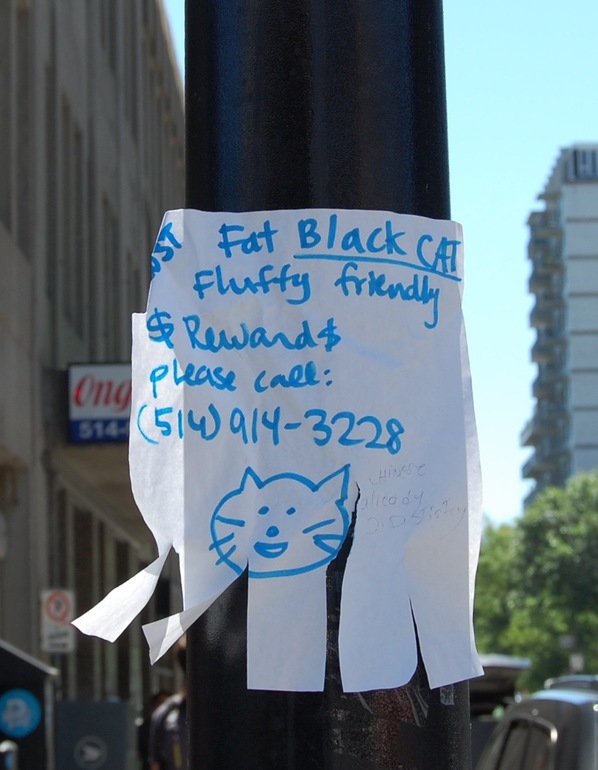 Fat Black CAT
Fluffy friendly
$ Reward $
please call:
(514) 914-3228
already
Ong
514-